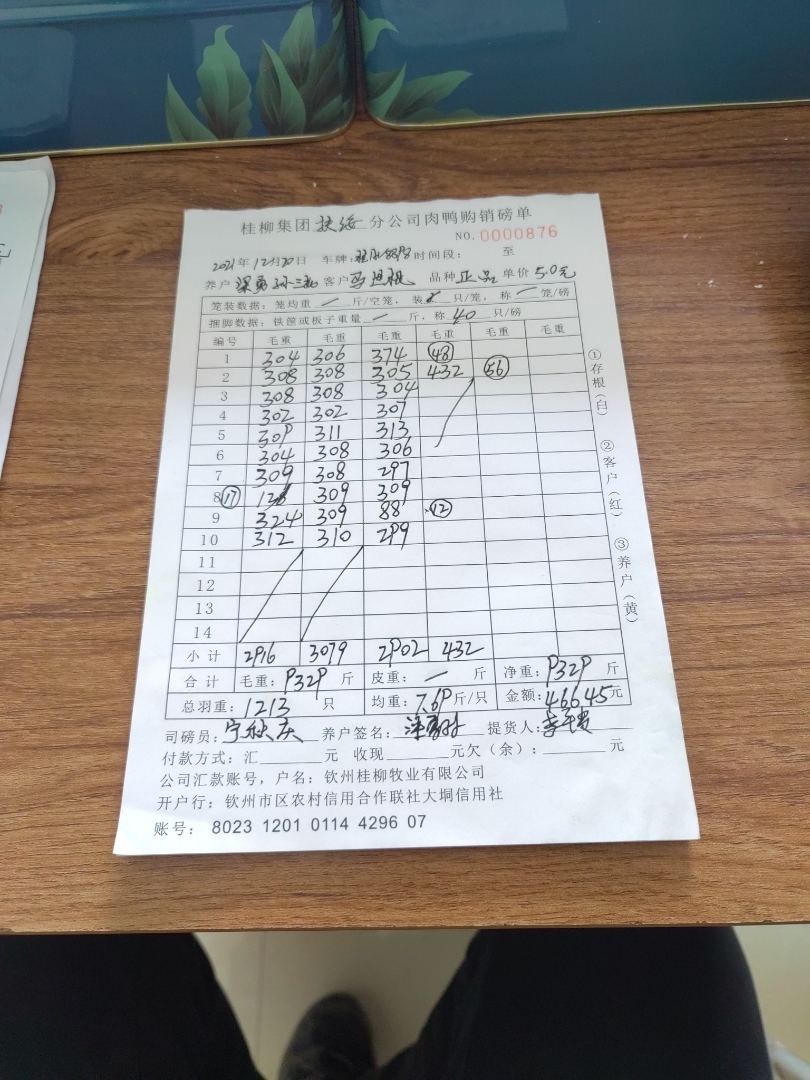 桂柳集团扶绥分公司肉鸭购销磅单
NO.0000876
2021年12月20日 车牌: 时间段: 至
养户 客户 品种正品 单价5.0元
笼装数据:笼均重 — 斤/空笼,装 只/笼,称 — 笼/磅
捆脚数据:铁筐或板子重量 — 斤,称 40 只/磅
编号 毛重 毛重 毛重 毛重 毛重 毛重
1 304 306 374 48
2 308 308 305 432 56
3 308 308 304
4 302 302 307
5 309 311 313
6 304 308 306
7 309 308 297
8 17 309 309
9 324 309 88 12
10 312 310 299
11
12
13
14
小计 2916 3079 2902 432
合计 毛重:9329 斤 皮重: — 斤 净重:9329 斤
总羽重:1213 只 均重:7.69 斤/只 金额:46645元
司磅员: 养户签名: 提货人:
付款方式:汇 元 收现 元欠(余): 元
公司汇款账号,户名:钦州桂柳牧业有限公司
开户行:钦州市区农村信用合作联社大垌信用社
账号: 8023 1201 0114 4296 07
①存根(白)
②客户(红)
③养户(黄)